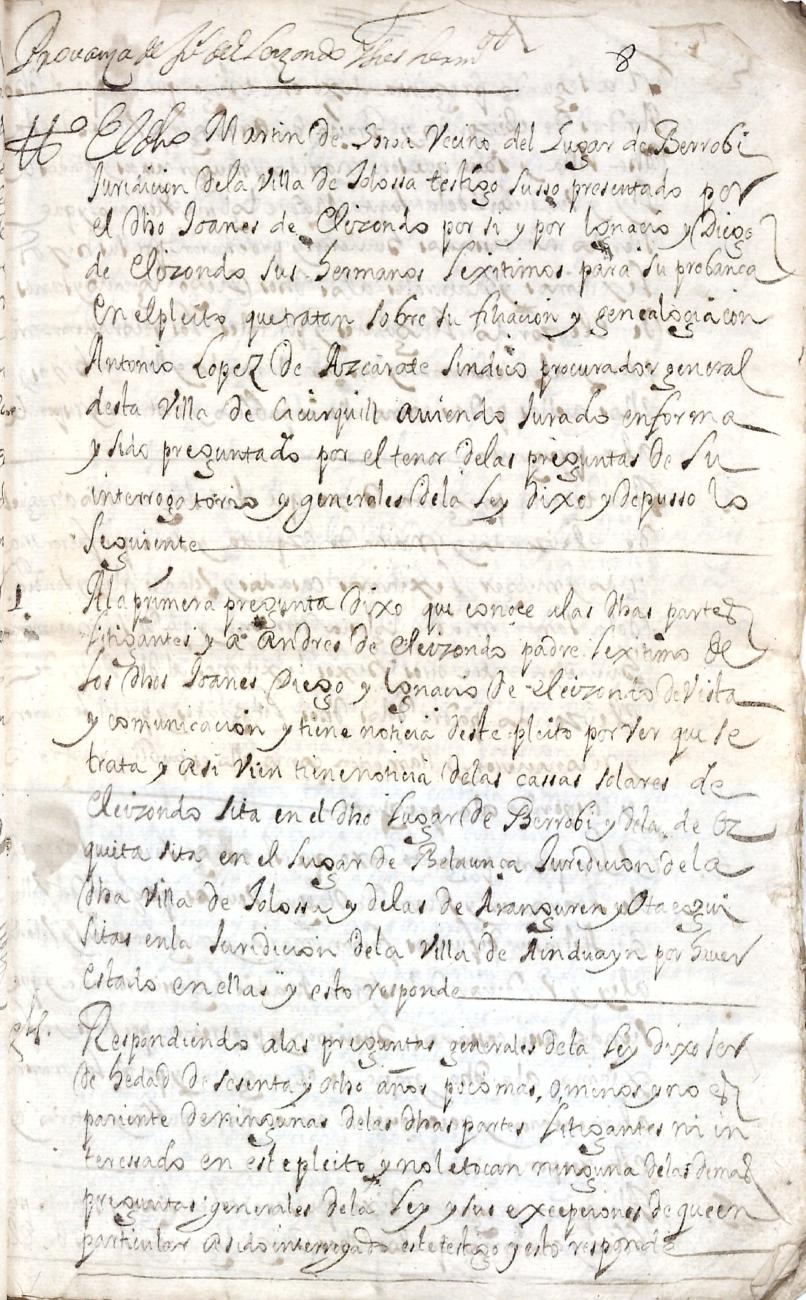 Provanza de Jn de Elexzondo
8
tto El dho Martin de Soroa Vecino del Lugar de Berrobi
Juridicion dela Villa de Tolossa testigo susso presentado por
el dho Joanes de Eleizondo por si y por Ignacio y Diego
de Eleizondo sus hermanos lexitimos para su probanca
En el pleito que tratan sobre su filiacion y genealogia con
Antonio Lopez de Azcarate sindico procurador general
desta Villa de Cicurquill aviendo Jurado en forma
y sido preguntado por el tenor delas preguntas de su
interrogatorio y generales dela Ley dixo y depusso lo
seguiente
1 A la primera pregunta dixo que conoce a las dhas partes
litigantes y a Andres de Eleizondo padre lexitimo de
los dhos Joanes Diego y Ignacio de Eleizondo de Vista
y comunicacion y tiene noticia deste pleito por ver que se
trata y asi vien tiene noticia delas cassas solares de
Eleizondo sita en el dho Lugar de Berrobi y dela de Oz
quita sita en el Lugar de Belaunca Juredicion de la
dha Villa de Tolossa y delas de Aranguren y Otacegui
sitas en la Juridicion dela Villa de Ainduayn por haver
estado en ellas y esto responde
Respondiendo a las preguntas generales dela Ley dixo ser
de hedad de sesenta y otho años poco mas, o minos y no es
pariente de ningunas delas dhas partes litigantes ni in
teressado en este pleito y no le tocan ninguna delas demas
preguntas generales dela Ley y sus excepciones de que en
particular a sido interrogado este testigo y esto responde